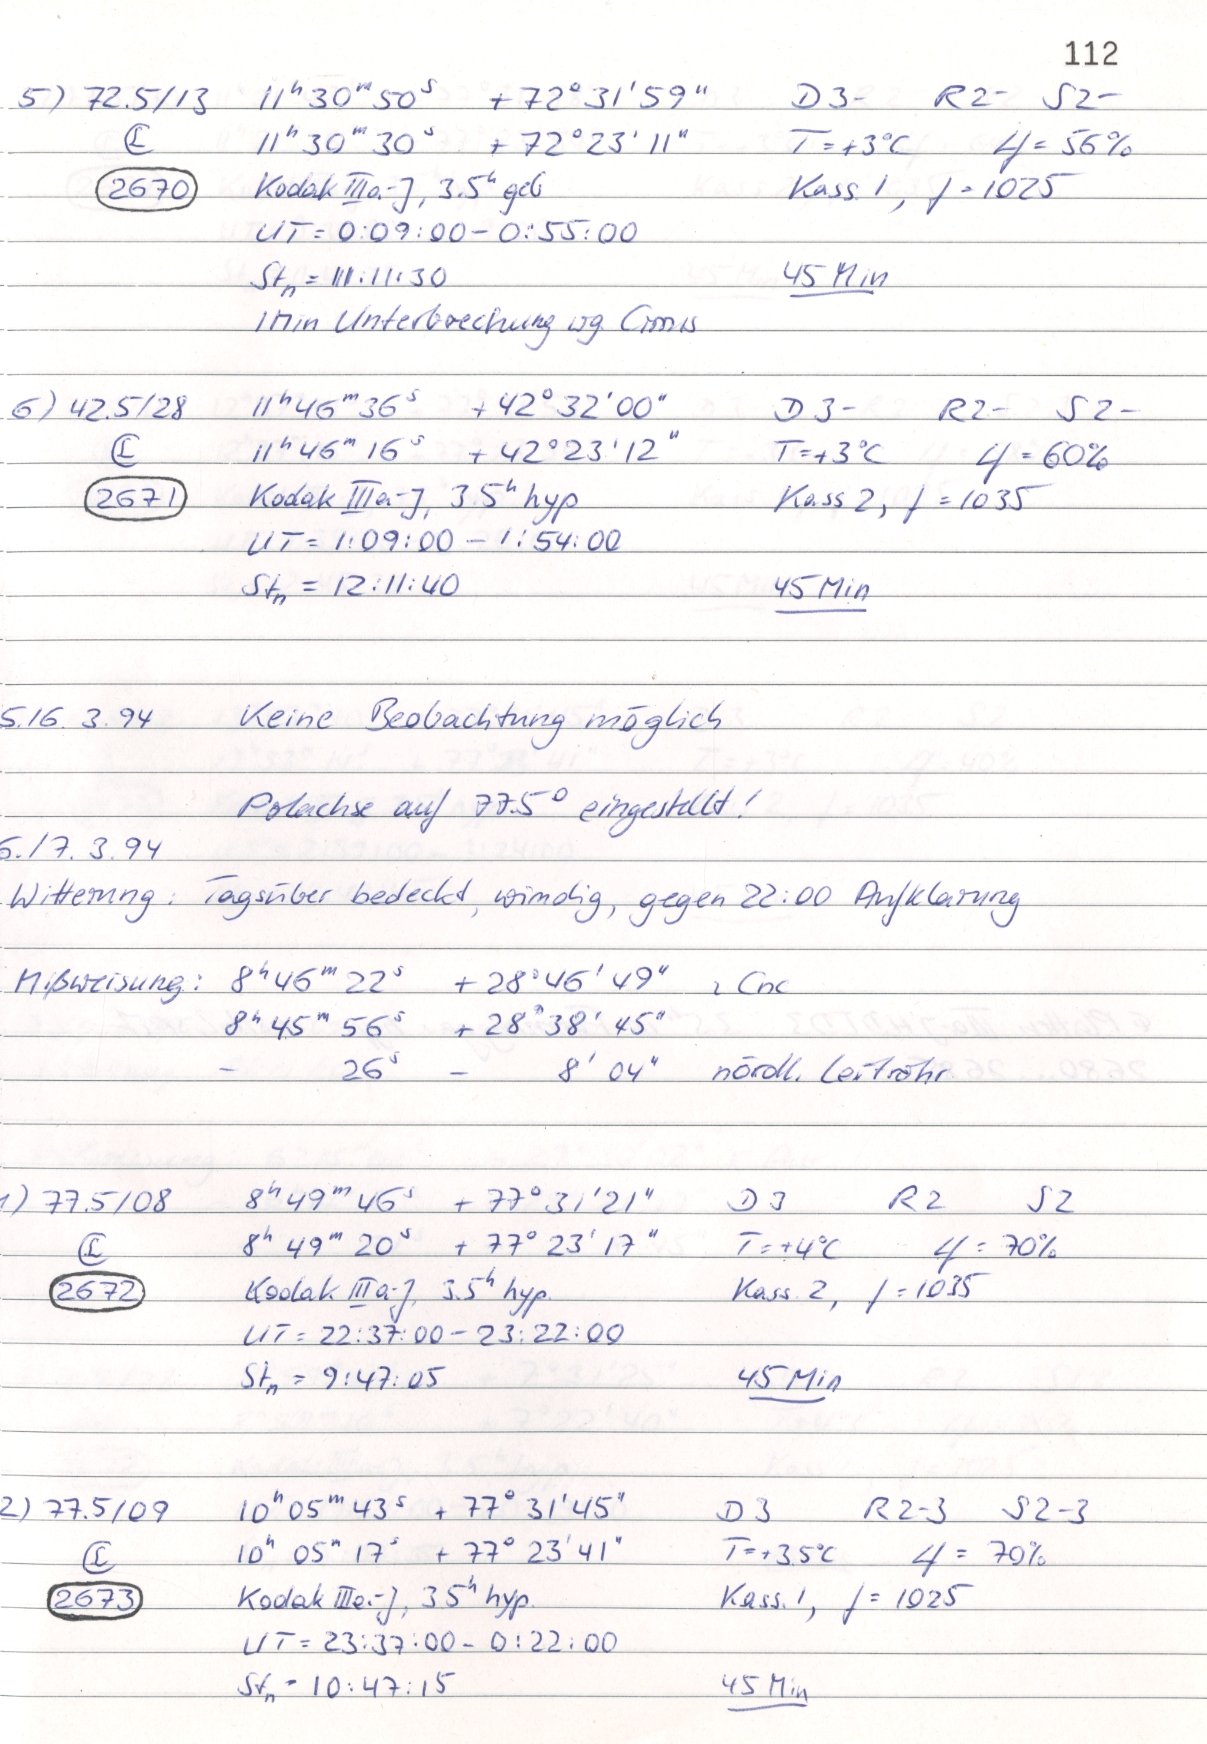 112
5) 72.5/13 11ʰ30ᵐ50ˢ +72°31'59" D3- R2- S2-
11ʰ30ᵐ30ˢ +72°23'11" T=+3°C = 56%
2670 Kodak IIIa-J, 3.5ʰ geb Kass. 1, f=1025
UT=0:09:00-0:55:00
Stₙ=11:11:30 45 Min
1 Min Unterbrechung wg. Cirrus
6) 42.5/28 11ʰ46ᵐ36ˢ +42°32'00" D3- R2- S2-
11ʰ46ᵐ16ˢ +42°23'12" T=+3°C = 60%
2671 Kodak IIIa-J, 3.5ʰ hyp Kass 2, f=1035
UT=1:09:00-1:54:00
Stₙ=12:11:40 45 Min
5.16. 3.94 Keine Beobachtung möglich
Polachse auf 77.5° eingestellt!
6./7. 3.94
Witterung: Tagsüber bedeckt, windig, gegen 22:00 Aufklarung
Mißweisung: 8ʰ46ᵐ22ˢ +28°46'49" ι Cnc
8ʰ45ᵐ56ˢ +28°38'45"
- 26ˢ - 8'04" nördl. Leitrohr
1) 77.5/08 8ʰ49ᵐ46ˢ +77°31'21" D3 R2 S2
8ʰ49ᵐ20ˢ +77°23'17" T=+4°C = 70%
2672 Kodak IIIa-J, 3.5ʰ hyp. Kass. 2, f=1035
UT=22:37:00-23:22:00
Stₙ=9:47:05 45 Min
2) 77.5/09 10ʰ05ᵐ43ˢ +77°31'45" D3 R2-3 S2-3
10ʰ05ᵐ17ˢ +77°23'41" T=+3.5°C = 70%
2673 Kodak IIIa-J, 3.5ʰ hyp. Kass. 1, f=1025
UT=23:37:00-0:22:00
Stₙ=10:47:15 45 Min